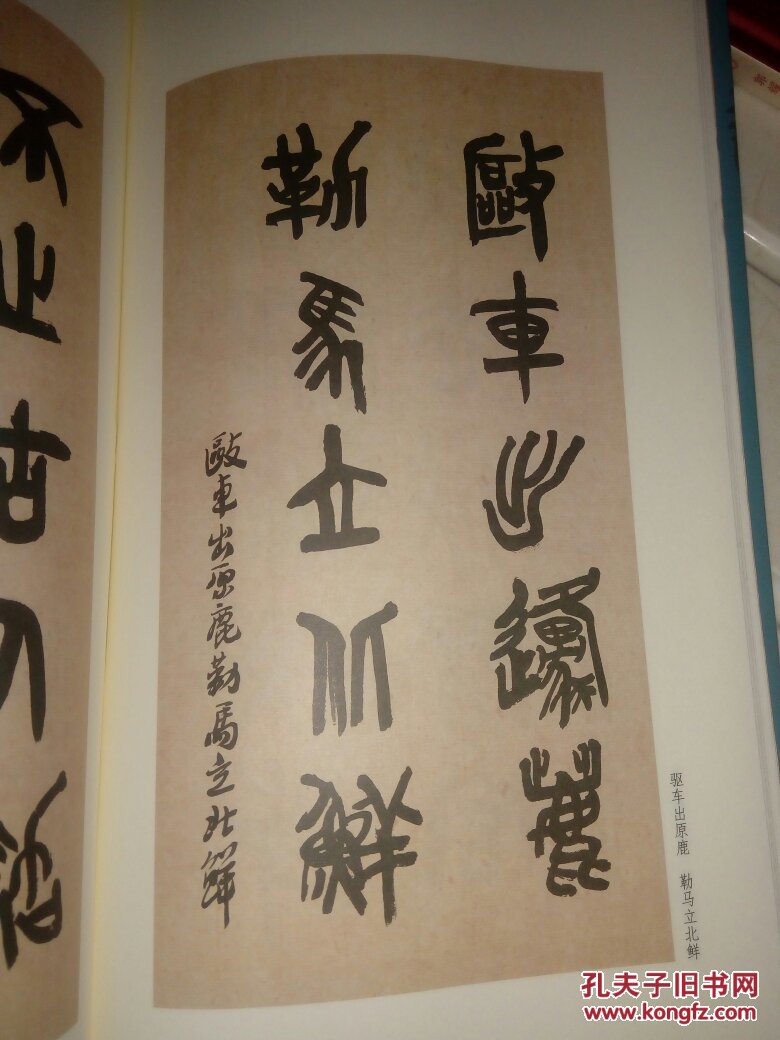 敺車出邍麓
勒馬立北鮮
敺車出原鹿勒馬立北鮮
驱车出原鹿 勒马立北鲜
不止古人
孔夫子旧书网
www.kongfz.com